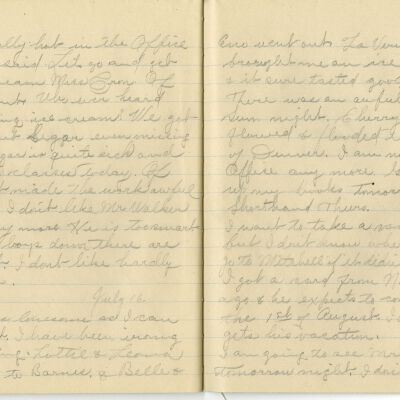 ally hot in the Office
said. Let's go and get
cream Miss Eron. Of
We ever heard
ing ice-cream! We got
Segar even missing
is quite sick and
today. Of
made the work awful
I don't like Mr. Walker
y more. He is too smart.
boys down there are
. I don't like hardly
July 16.
lonesome as I can
. I have been ironing
ing. Lottie & Leona
to Barnes. & Belle &
Eno went out. La Vou
brought me an ice
& it sure tasted good
There was an awful
rain night. Cherry
flowed & flooded
of Denver. I am n
Office any more. I
up my books tomor
Shorthand Thurs.
I want to take a va
but I don't know whe
go to Mitchell if it
I got a card from M
ago & he expects to co
the 1st of August. I
gets his vacation.
I am going to see Mr
tomorrow night. I don